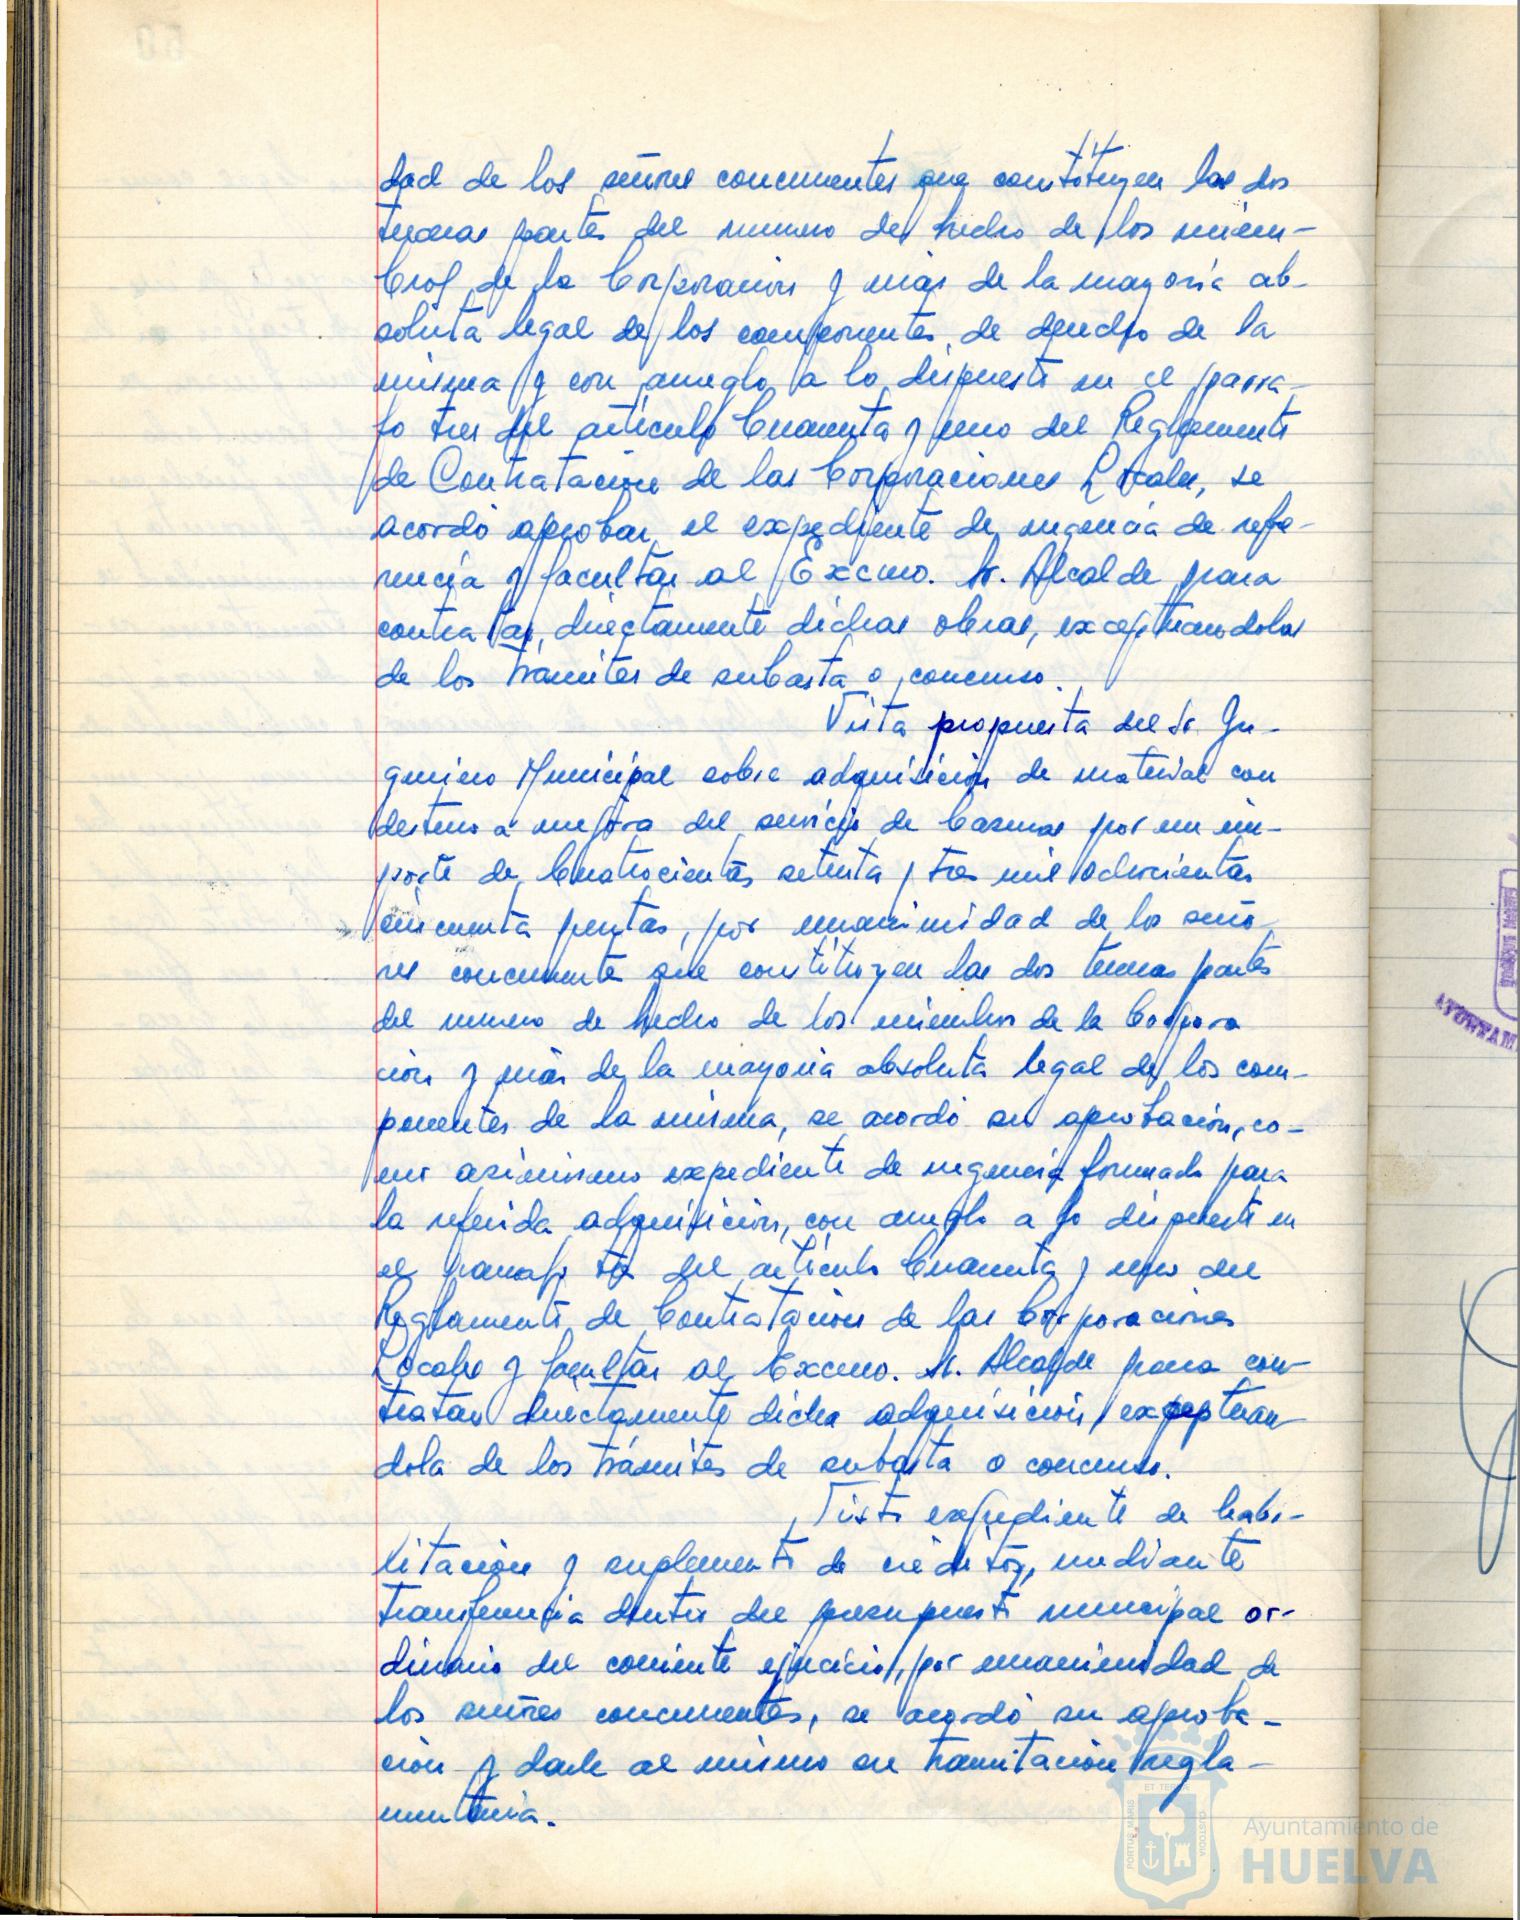 dad de los señores concurrentes que constituyen las dos
terceras partes del numero de hecho de los miem-
bros de la Corporación y más de la mayoría ab-
soluta legal de los componentes de derecho de la
misma y con arreglo a lo dispuesto en el parra-
fo tres del artículo Cuarenta y uno del Reglamento
de Contratación de las Corporaciones Locales, se
acordó aprobar el expediente de urgencia de refe-
rencia y facultar al Excmo. Sr. Alcalde para
contratar directamente dichas obras, exceptuandolas
de los trámites de subasta o concurso.
Vista propuesta del Sr. In-
geniero Municipal sobre adquisición de material con
destino a mejora del servicio de basuras por un im-
porte de Cuatrocientas setenta y tres mil doscientas
cincuenta pesetas, por unanimidad de los seño
res concurrente que constituyen las dos terceras partes
del numero de hecho de los miembros de la Corpora
ción y más de la mayoria absoluta legal de los com-
ponentes de la misma, se acordó su aprobación, co-
mo asimismo expediente de urgencia formado para
la referida adquisición, con arreglo a lo dispuesto en
el parrafo tres del artículo Cuarenta y uno del
Reglamento de Contratación de las Corporaciones
Locales y facultar al Excmo. Sr. Alcalde para con-
tratar directamente dicha adquisición, exceptuan-
dola de los trámites de subasta o concurso.
Visto expediente de habi-
litación y suplemento de créditos, mediante
transferencia dentro del presupuesto municipal or-
dinario del corriente ejercicio, por unanimidad de
los señores concurrentes, se acordó su aproba-
ción y darle al mismo su tramitación regla-
mentaria.
ET TERRAE
PORTUS MARIS
CUSTODIA
Ayuntamiento de
HUELVA